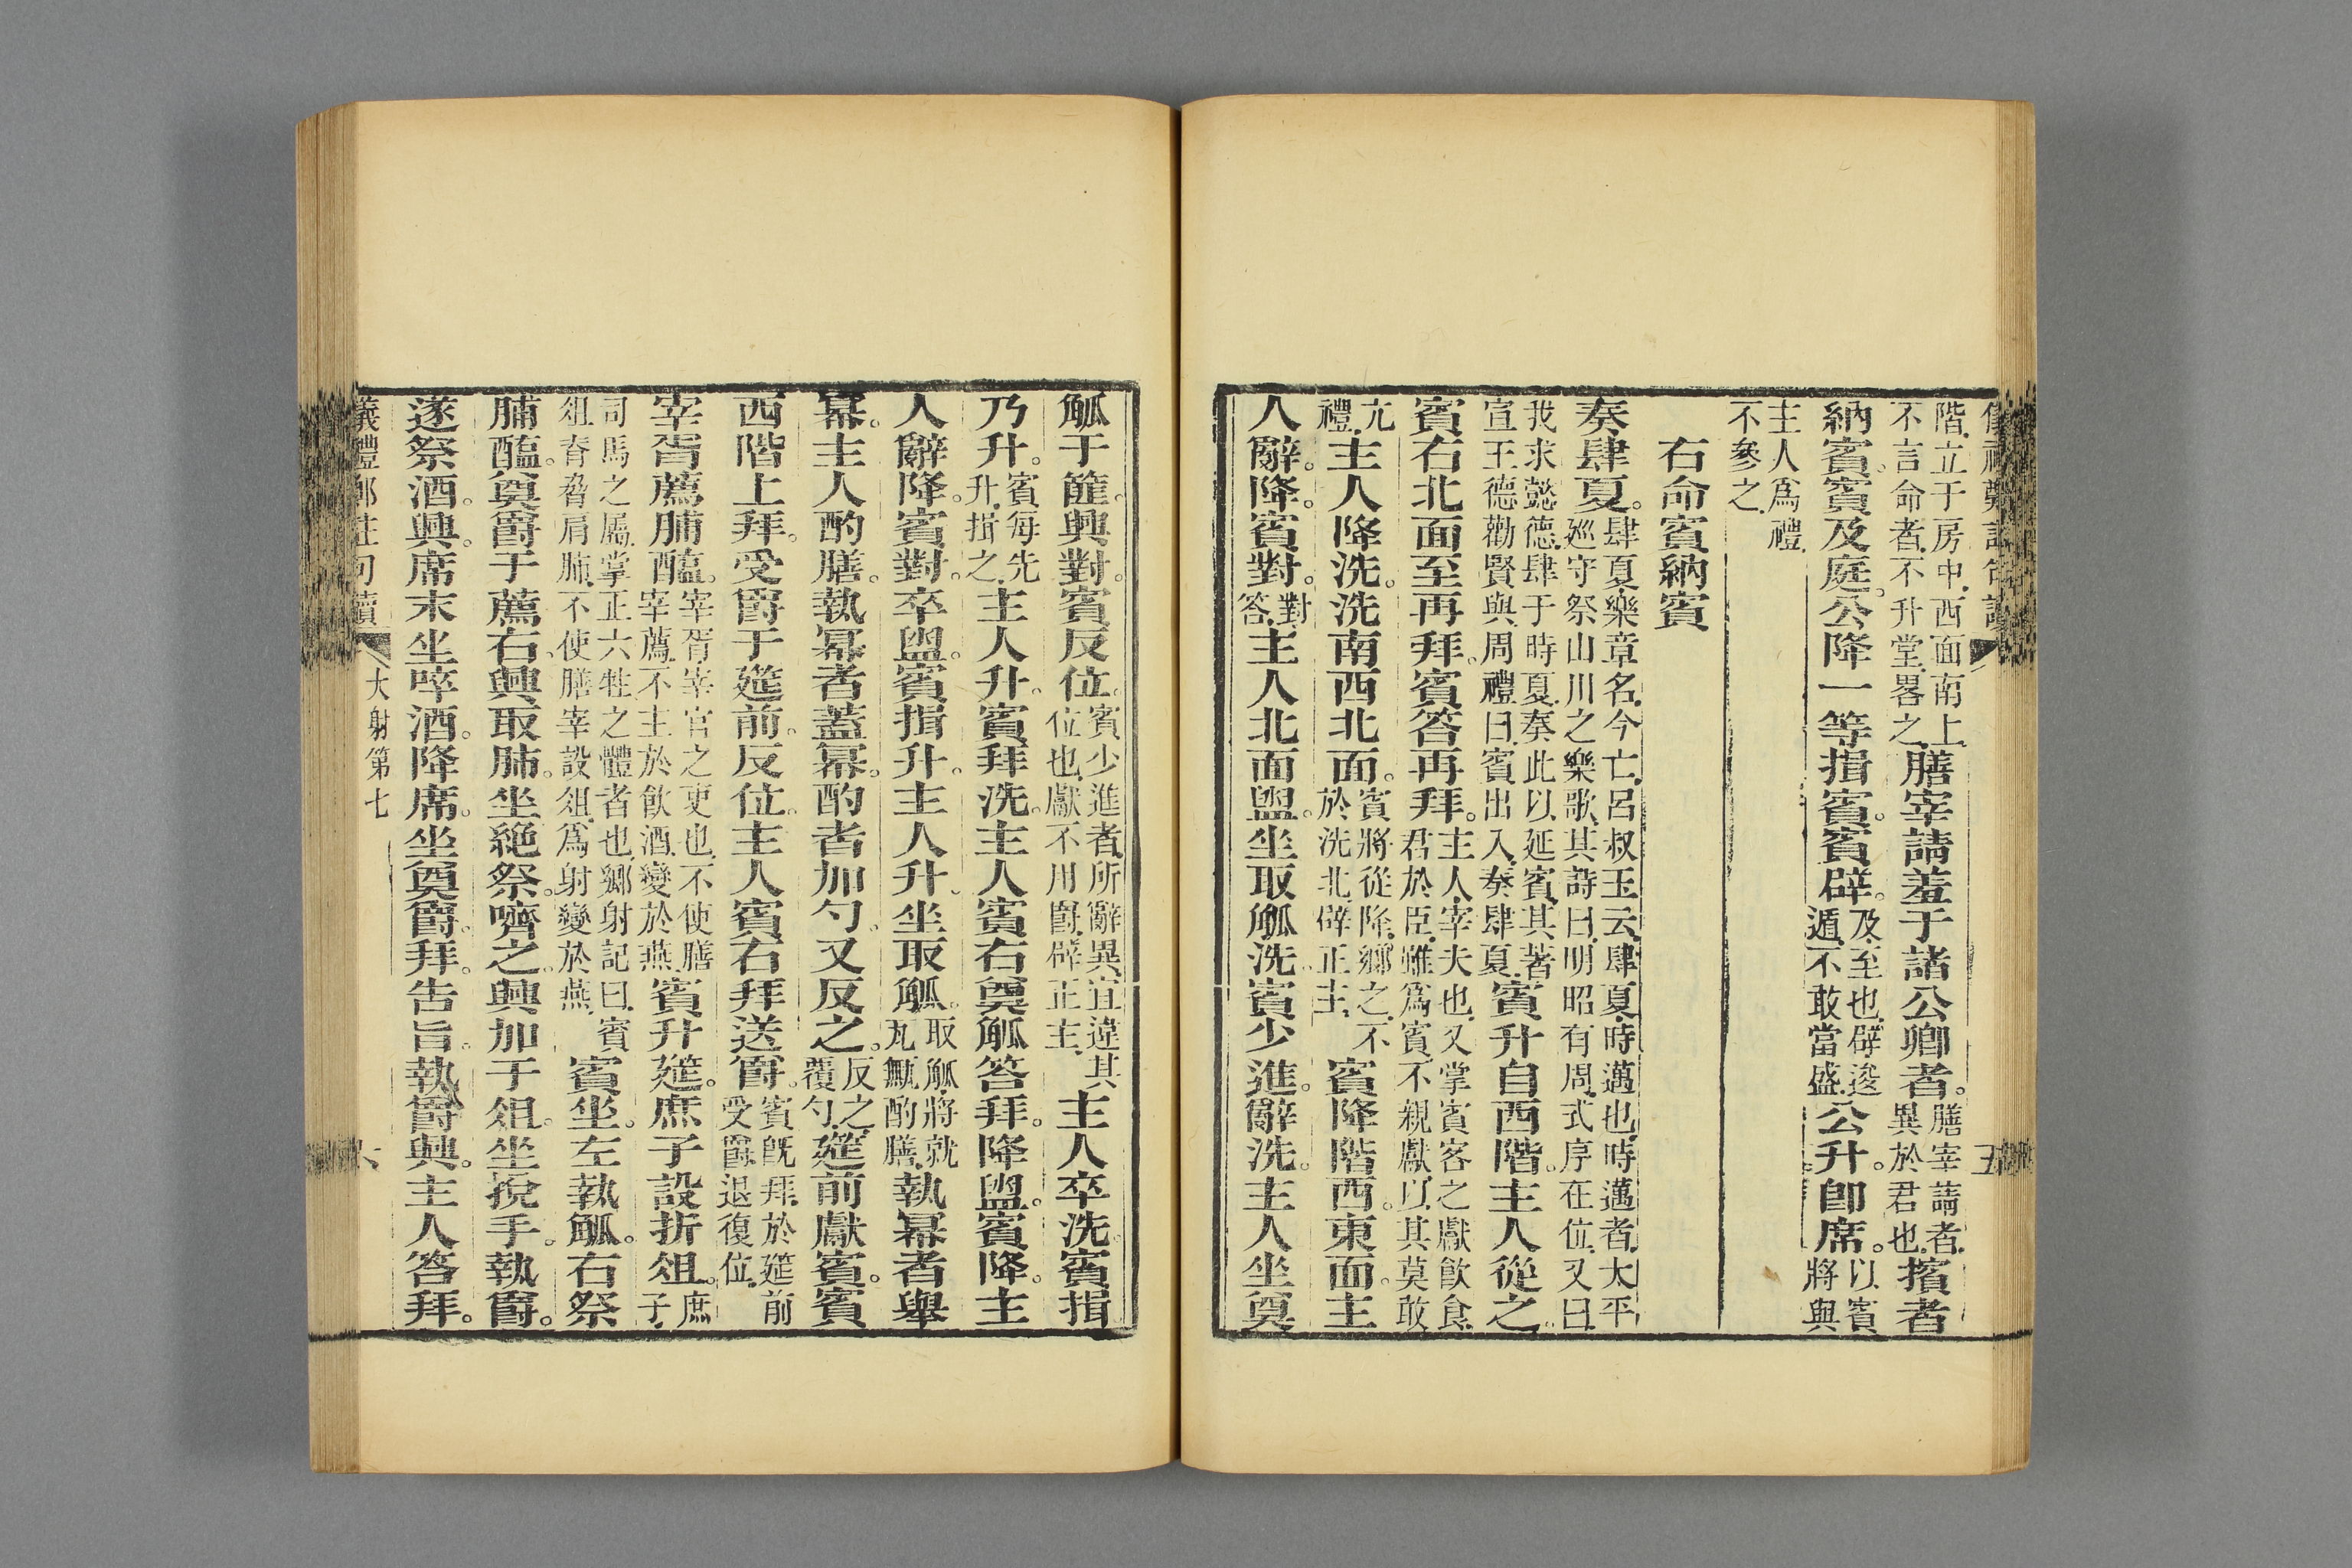 階立于房中西面南上
不言命者不升堂畧之
膳宰請羞于諸公卿者。
膳宰請者
異於君也
擯者
納賓。賓及庭。公降一等揖賓。賓辟。
及至也辟逡
遁不敢當盛
公升。卽席。
以賓
將與
主人爲禮
不參之
右命賓納賓
奏肆夏。
肆夏樂章名今亡呂叔玉云肆夏時邁也時邁者太平
巡守祭山川之樂歌其詩曰明昭有周式序在位又曰
我求懿德肆于時夏奏此以延賓其著
宣王德勸賢與周禮曰賓出入奏肆夏
賓升自西階。主人從之。
賓右北面至再拜。賓答再拜。
主人宰夫也又掌賓客之獻飮食
君於臣雖爲賓不親獻以其莫敢
亢
禮
主人降洗。洗南西北面。
賓將從降鄉之不
於洗北辟正主
賓降階西。東面。主
人辭降。賓對。
對
答
主人北面盥。坐取觚洗。賓少進。辭洗。主人坐奠
觚于篚。興對。賓反位。
賓少進者所辭異宜違其
位也獻不用爵辟正主
主人卒洗。賓揖
乃升。
賓每先
升揖之
主人升。賓拜洗。主人賓右奠觚答拜。降盥。賓降。主
人辭降。賓對。卒盥。賓揖升。主人升。坐取觚。
取觚將就
瓦甒酌膳
執冪者舉
冪。主人酌膳。執冪者蓋冪。酌者加勺。又反之。
反之
覆勺
筵前獻賓。賓
西階上拜。受爵于筵前。反位。主人賓右拜送爵。
賓旣拜於筵前
受爵退復位
宰胥薦脯醢。
宰胥宰官之吏也不使膳
宰薦不主於飮酒變於燕
賓升筵。庶子設折俎。
庶
子
司馬之屬掌正六牲之體者也鄉射記曰賓
俎脊脅肩肺不使膳宰設俎爲射變於燕
賓坐。左執觚。右祭
脯醢。奠爵于薦右。興取肺。坐絕祭。嚌之。興加于俎。坐挩手。執爵。
遂祭酒。興。席末坐啐酒。降席。坐奠爵。拜。告旨。執爵興。主人答拜。
儀禮鄭註句讀
大射第七